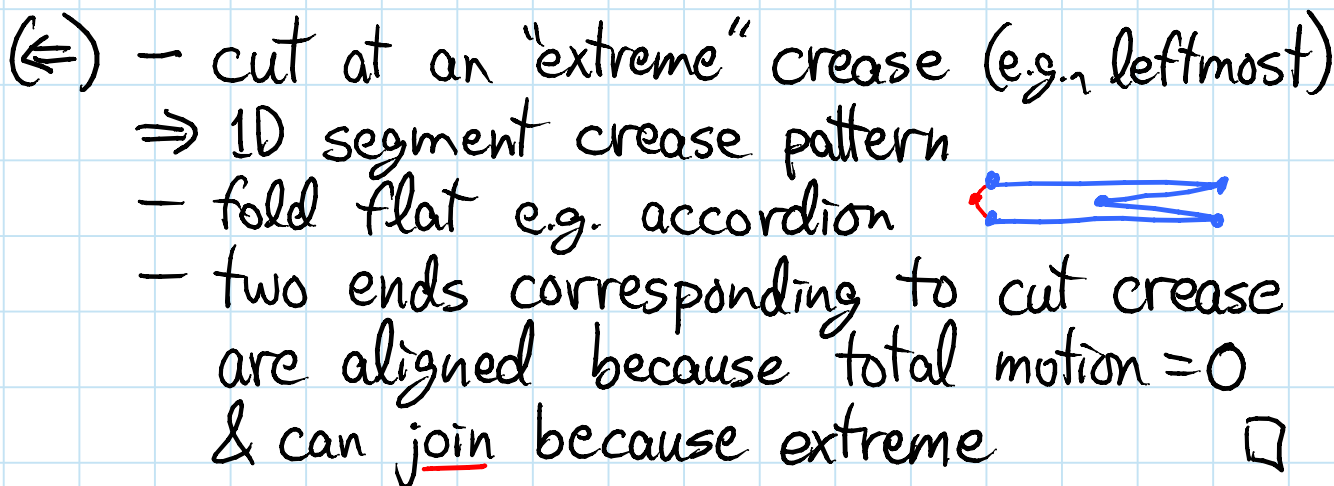 (⇐) – cut at an "extreme" crease (e.g., leftmost)
⇒ 1D segment crease pattern
– fold flat e.g. accordion
– two ends corresponding to cut crease
are aligned because total motion = 0
& can join because extreme □